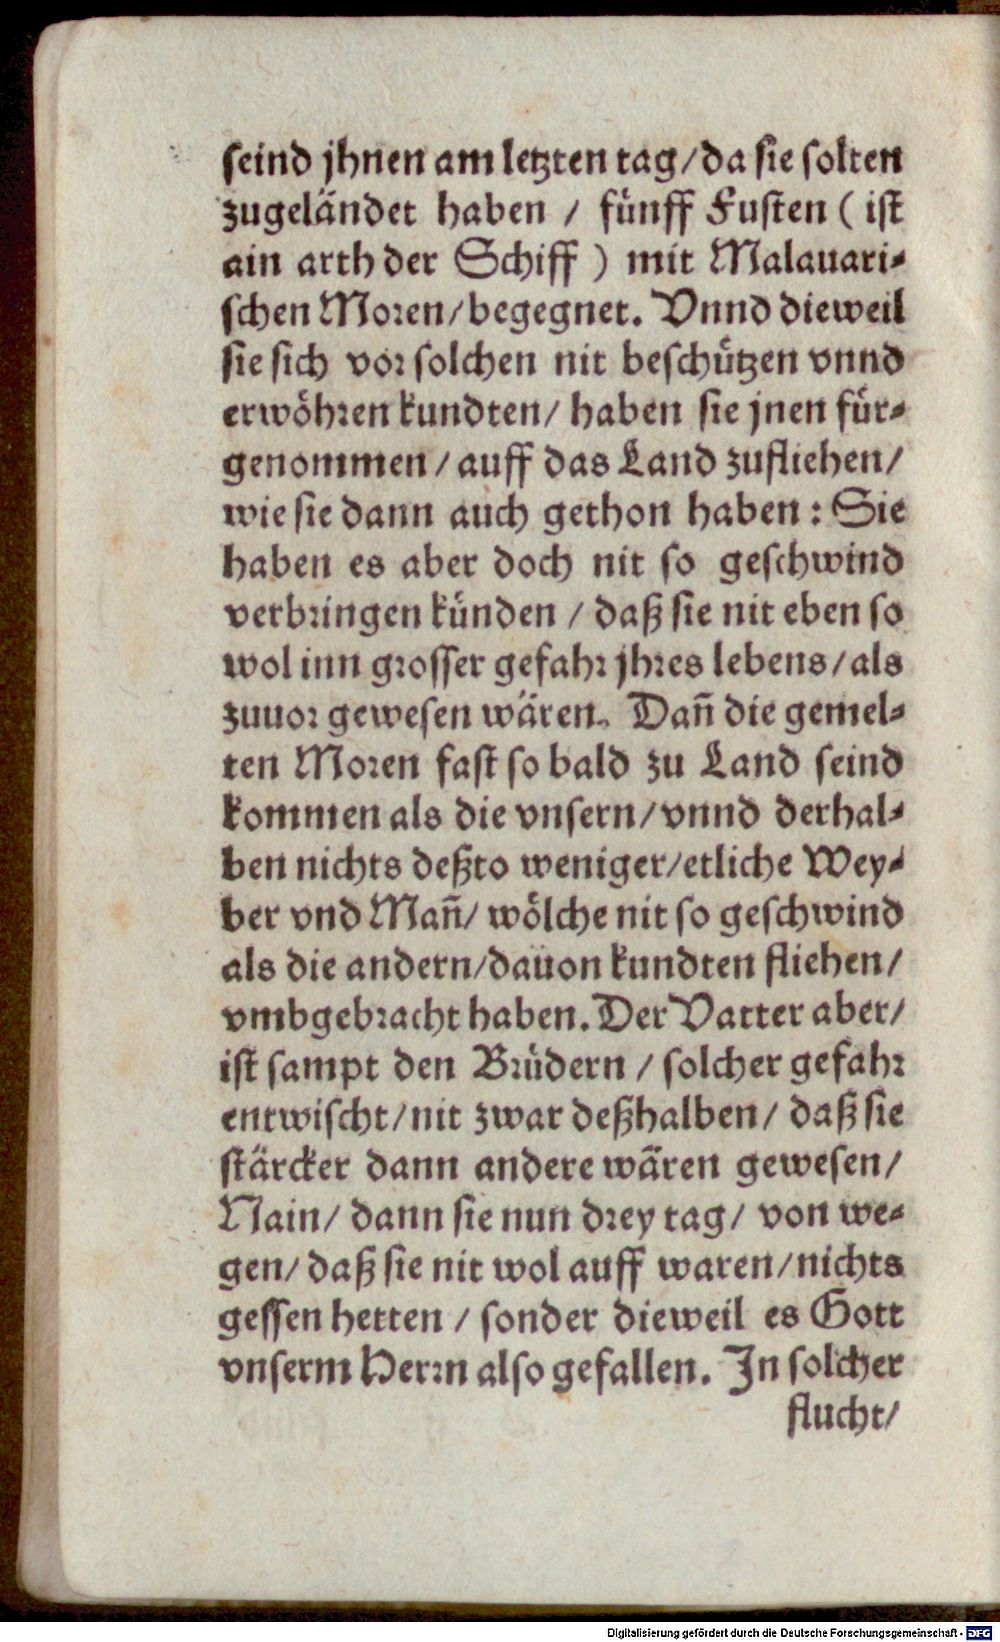 seind jhnen am letzten tag/da sie solten
zugeländet haben / fünff Fusten ( ist
ain arth der Schiff ) mit Malauari-
schen Moren/begegnet. Vnnd dieweil
sie sich vor solchen nit beschützen vnnd
erwöhren kundten/ haben sie jnen für-
genommen/auff das Land zufliehen/
wie sie dann auch gethon haben: Sie
haben es aber doch nit so geschwind
verbringen künden / daß sie nit eben so
wol inn grosser gefahr jhres lebens/als
zuuor gewesen wären. Dañ die gemel-
ten Moren fast so bald zu Land seind
kommen als die vnsern/vnnd derhal-
ben nichts deßto weniger/etliche Wey-
ber vnd Mañ/ wölche nit so geschwind
als die andern/dauon kundten fliehen/
vmbgebracht haben. Der Vatter aber/
ist sampt den Brüdern / solcher gefahr
entwischt/nit zwar deßhalben/ daß sie
stärcker dann andere wären gewesen/
Nain/ dann sie nun drey tag/ von we-
gen/ daß sie nit wol auff waren/nichts
gessen hetten / sonder dieweil es Gott
vnserm Herrn also gefallen. In solcher
flucht/
Digitalisierung gefördert durch die Deutsche Forschungsgemeinschaft - DFG